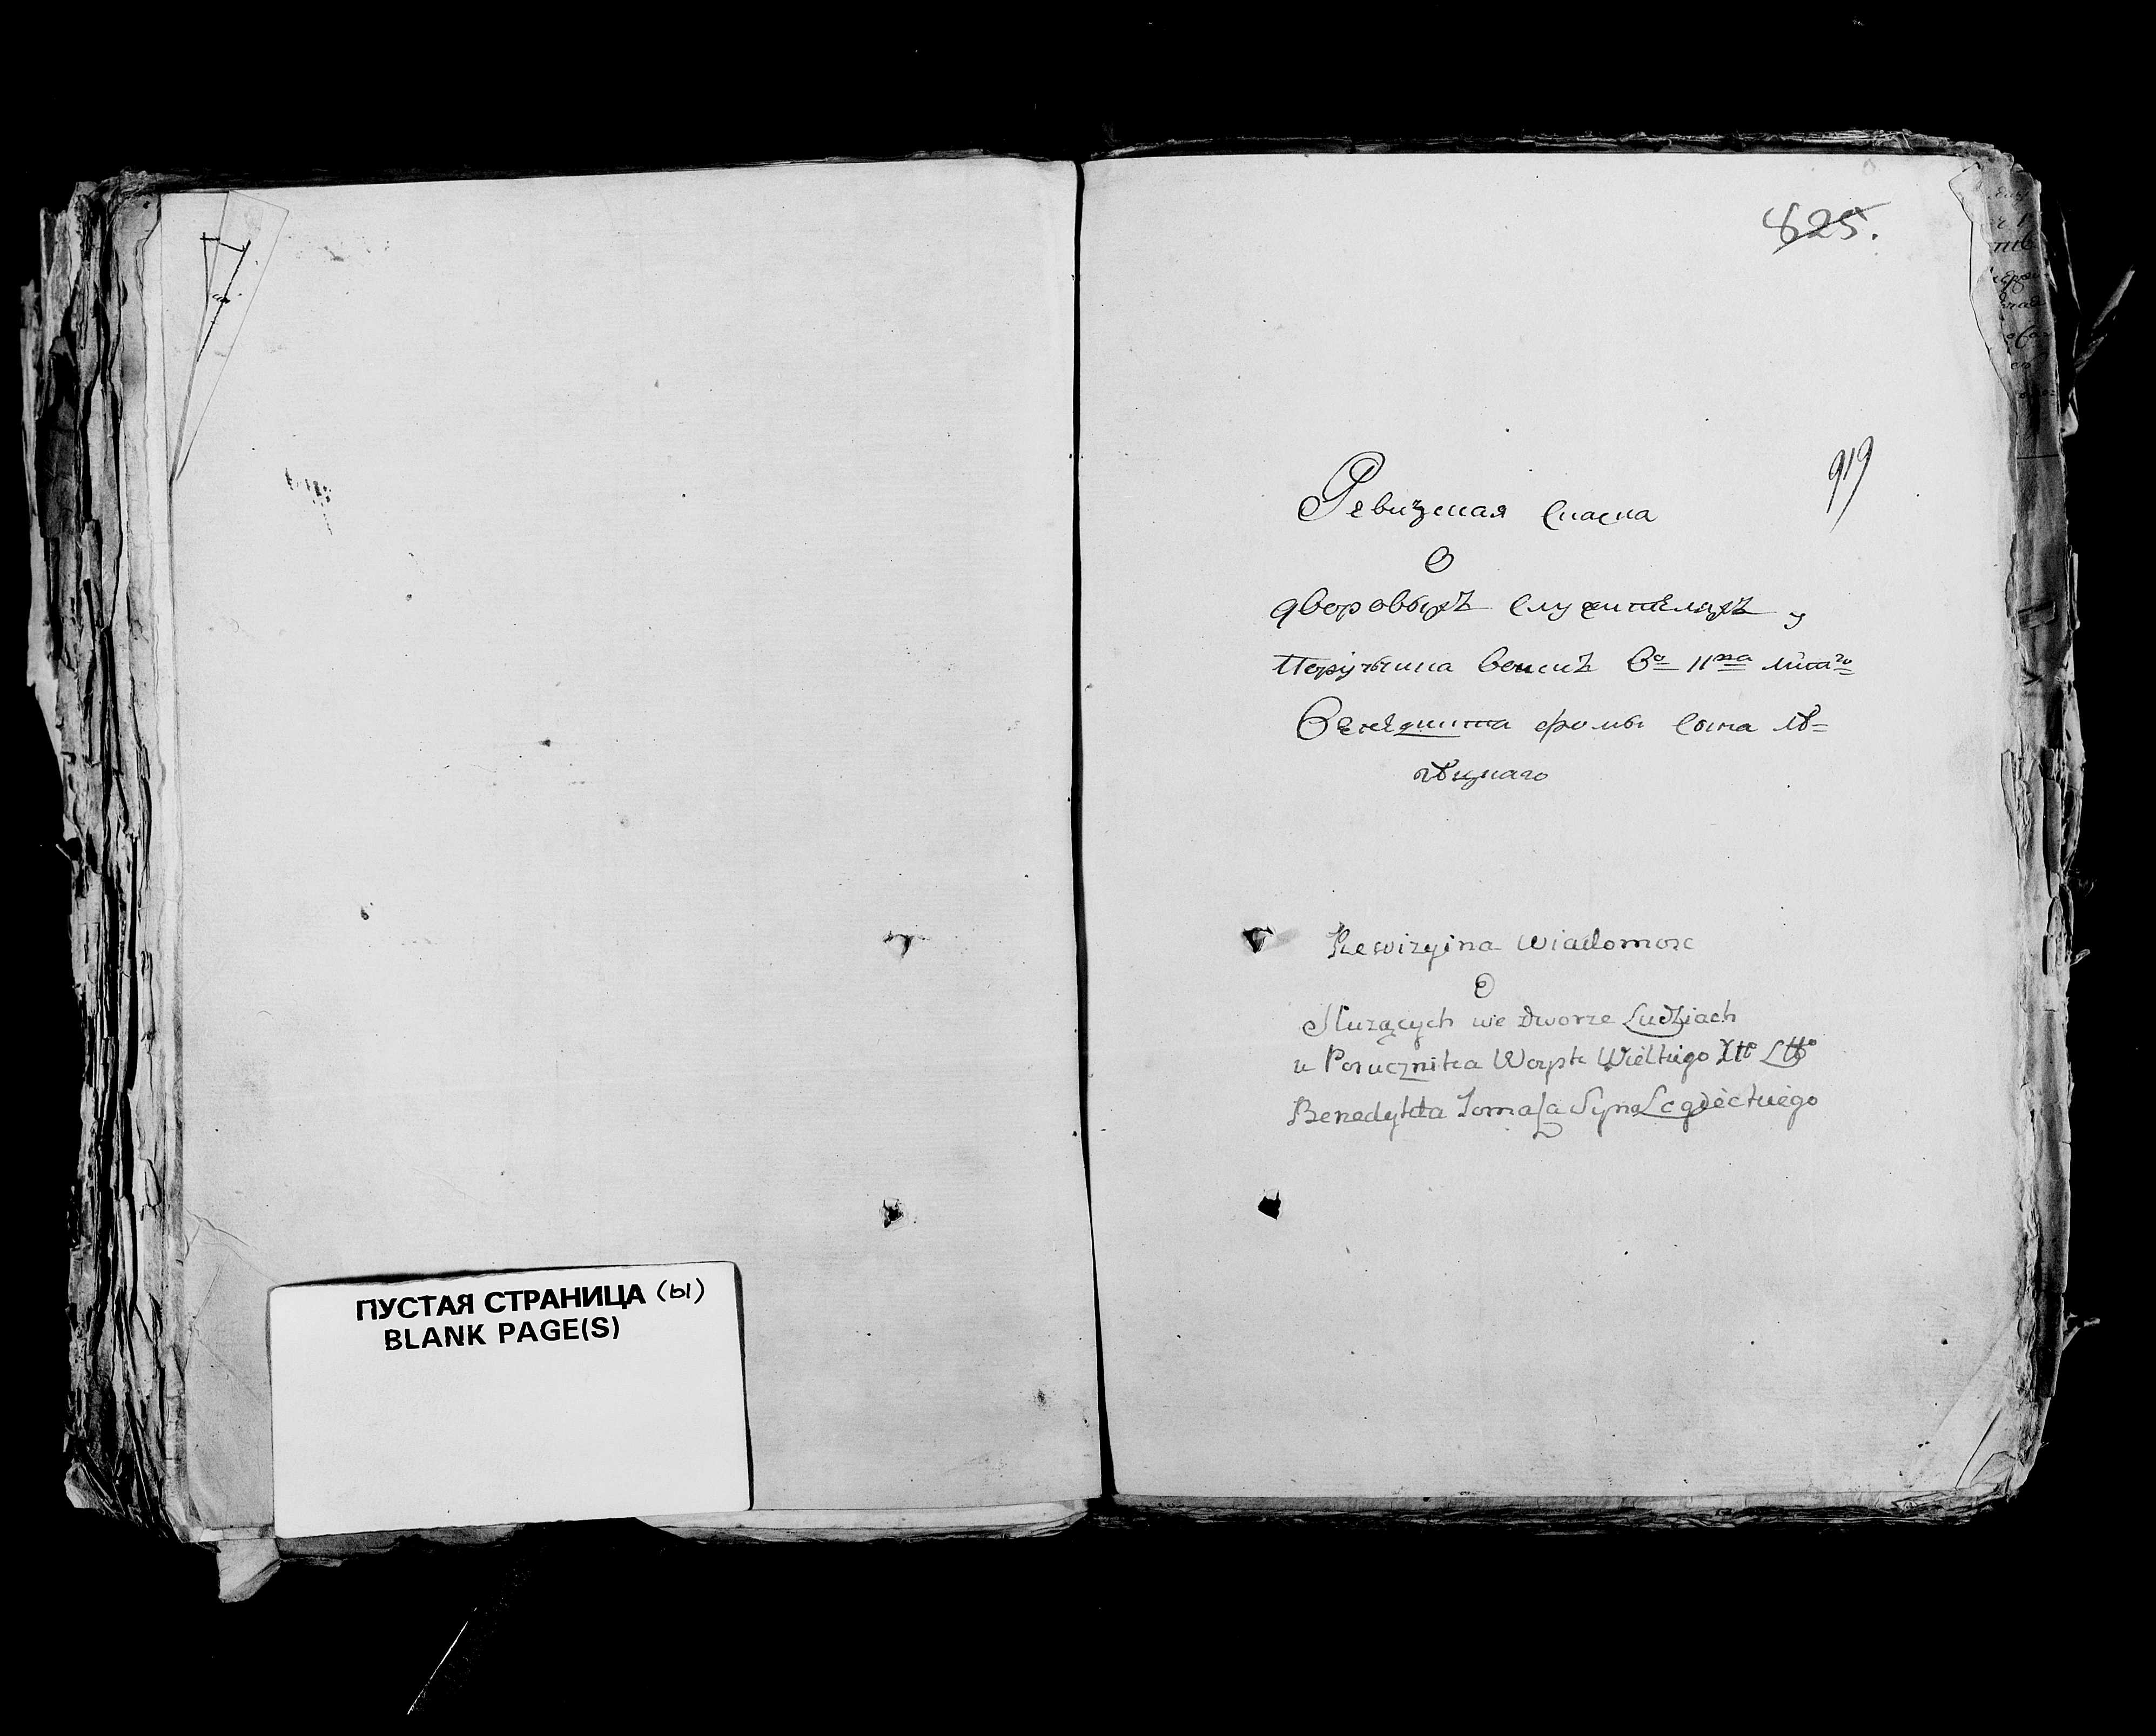 ПУСТАЯ СТРАНИЦА (ы)
BLANK PAGE(S)
825.
919
Ревизская Скаска
О
дворовыхъ служителяхъ у
Поручика войскъ Во
Бенедикта Фомы Сына
Rewizyina Wiadomosc
O
Służących we dworze Ludziach
u Porucznika Woysk Wielkiego
Benedykta Tomasza Syna